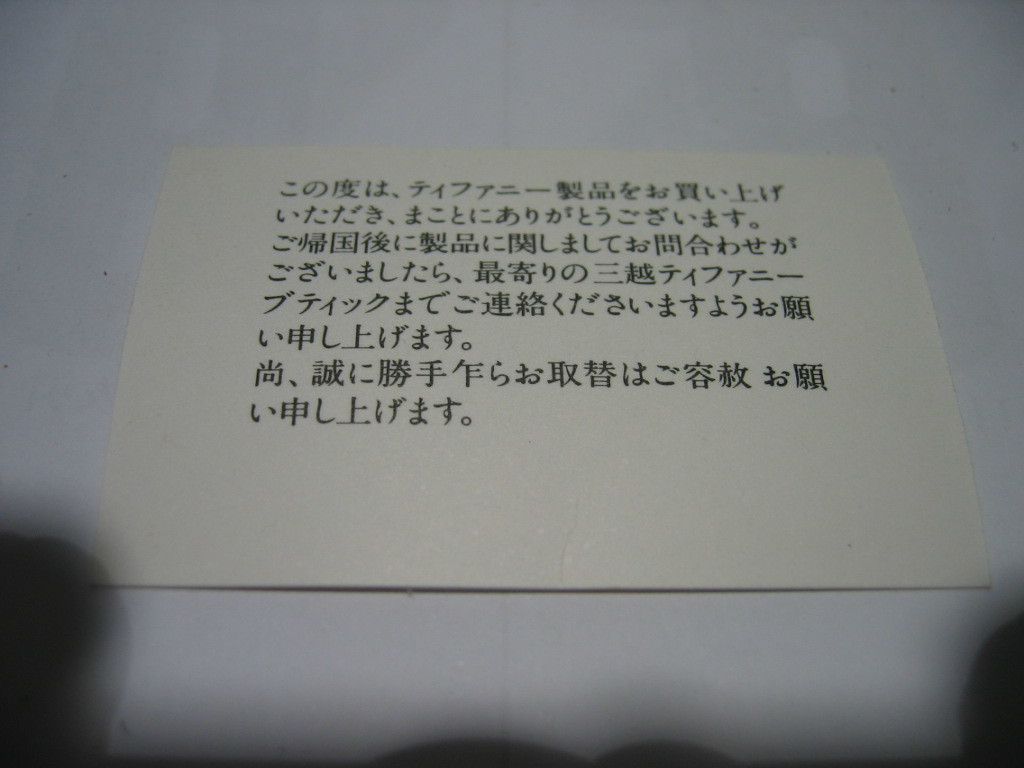 この度は、ティファニー製品をお買い上げ
いただき、まことにありがとうございます。
ご帰国後に製品に関しましてお問合わせが
ございましたら、最寄りの三越ティファニー
ブティックまでご連絡くださいますようお願
い申し上げます。
尚、誠に勝手乍らお取替はご容赦 お願
い申し上げます。